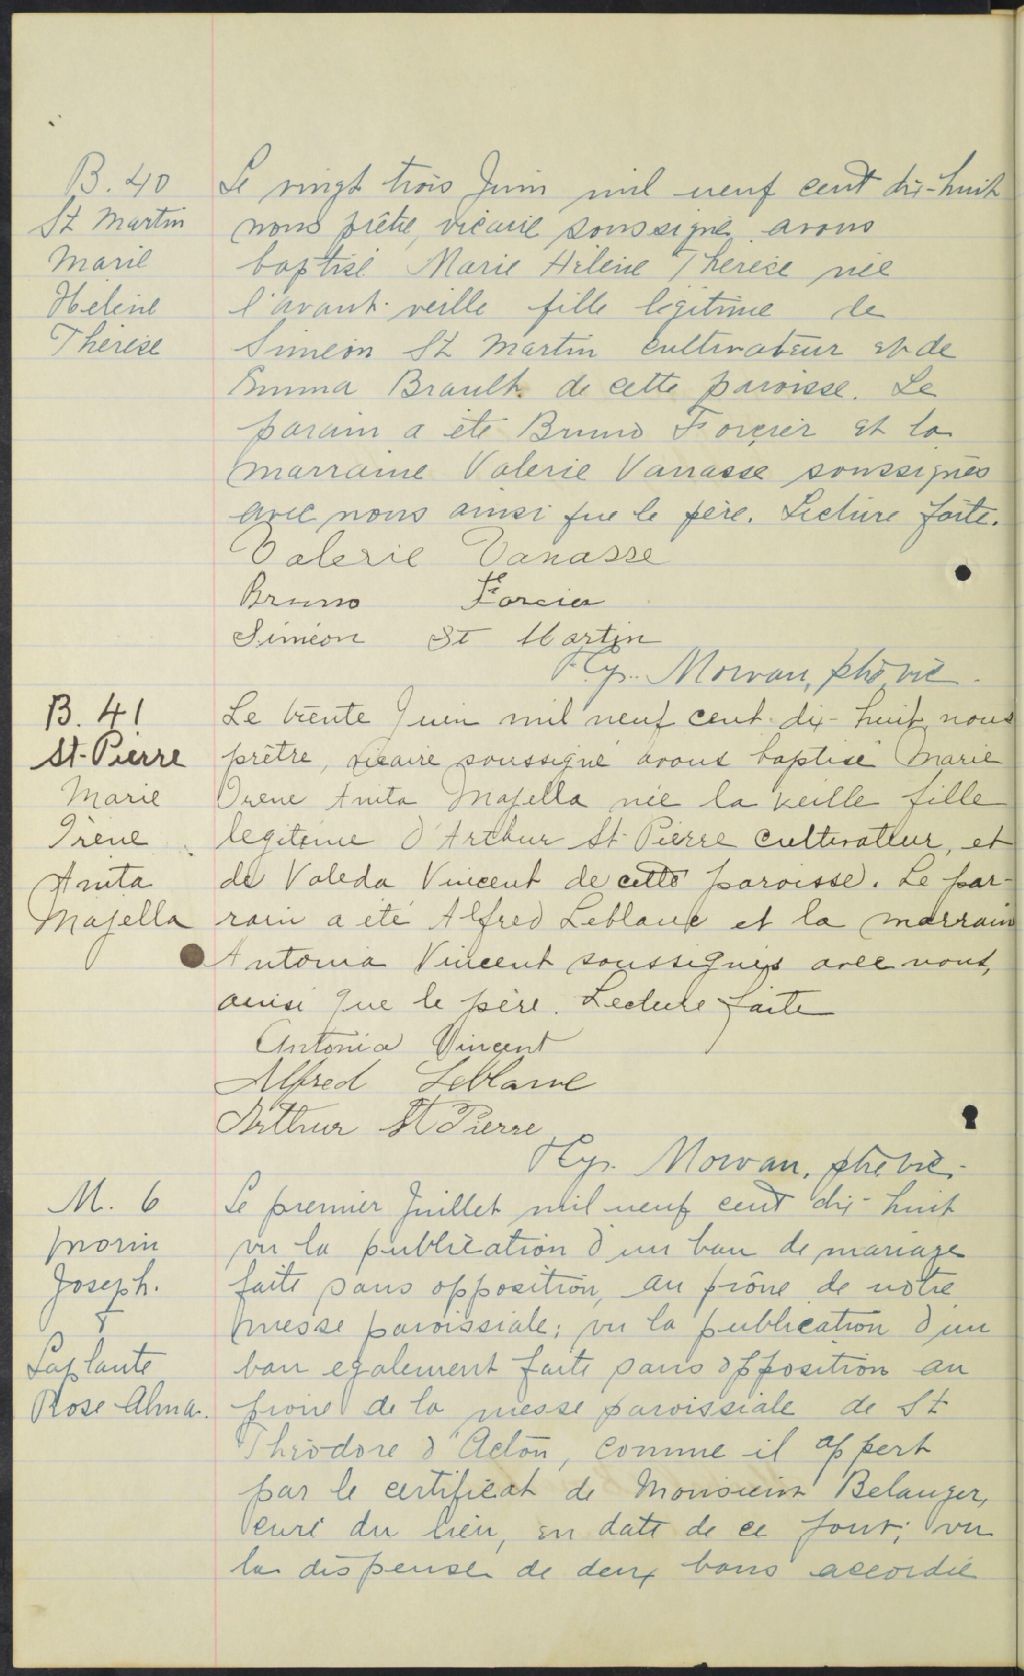 B. 40
St Martin
Marie
Hélène
Thérèse
Le vingt trois Juin mil neuf cent dix-huit
nous prêtre, vicaire soussigné avons
baptisé Marie Hélène Thérèse née
l'avant-veille fille légitime de
Siméon St Martin cultivateur et de
Emma Brault de cette paroisse. Le
parain a été Bruno Forcier et la
marraine Valerie Vanasse soussignés
avec nous ainsi que le père. Lecture faite.
Valerie Vanasse
Bruno Forcier
Siméon St Martin
Hyp. Morvan, ptre vic.
B. 41
St-Pierre
Marie
Irène
Anita
Majella
Le trente Juin mil neuf cent dix-huit nous
prêtre, vicaire soussigné avons baptisé Marie
Irene Anita Majella née la veille fille
legitime d'Arthur St-Pierre cultivateur, et
de Valeda Vincent de cette paroisse. Le par-
rain a été Alfred Leblanc et la marraine
Antonia Vincent soussignés avec nous,
ainsi que le père. Lecture faite
Antonia Vincent
Alfred Leblanc
Arthur St Pierre
Hyp. Morvan, ptre vic.
M. 6
Morin
Joseph.
&
Laplante
Rose Alma.
Le premier Juillet mil neuf cent dix-huit
vu la publication d'un ban de mariage
faite sans opposition, au prône de notre
messe paroissiale; vu la publication d'un
ban egalement faite sans opposition au
prone de la messe paroissiale de St
Théodore d'Acton, comme il appert
par le certificat de Monsieur Belanger,
curé du lieu, en date de ce jour; vu
la dispense de deux bans accordée